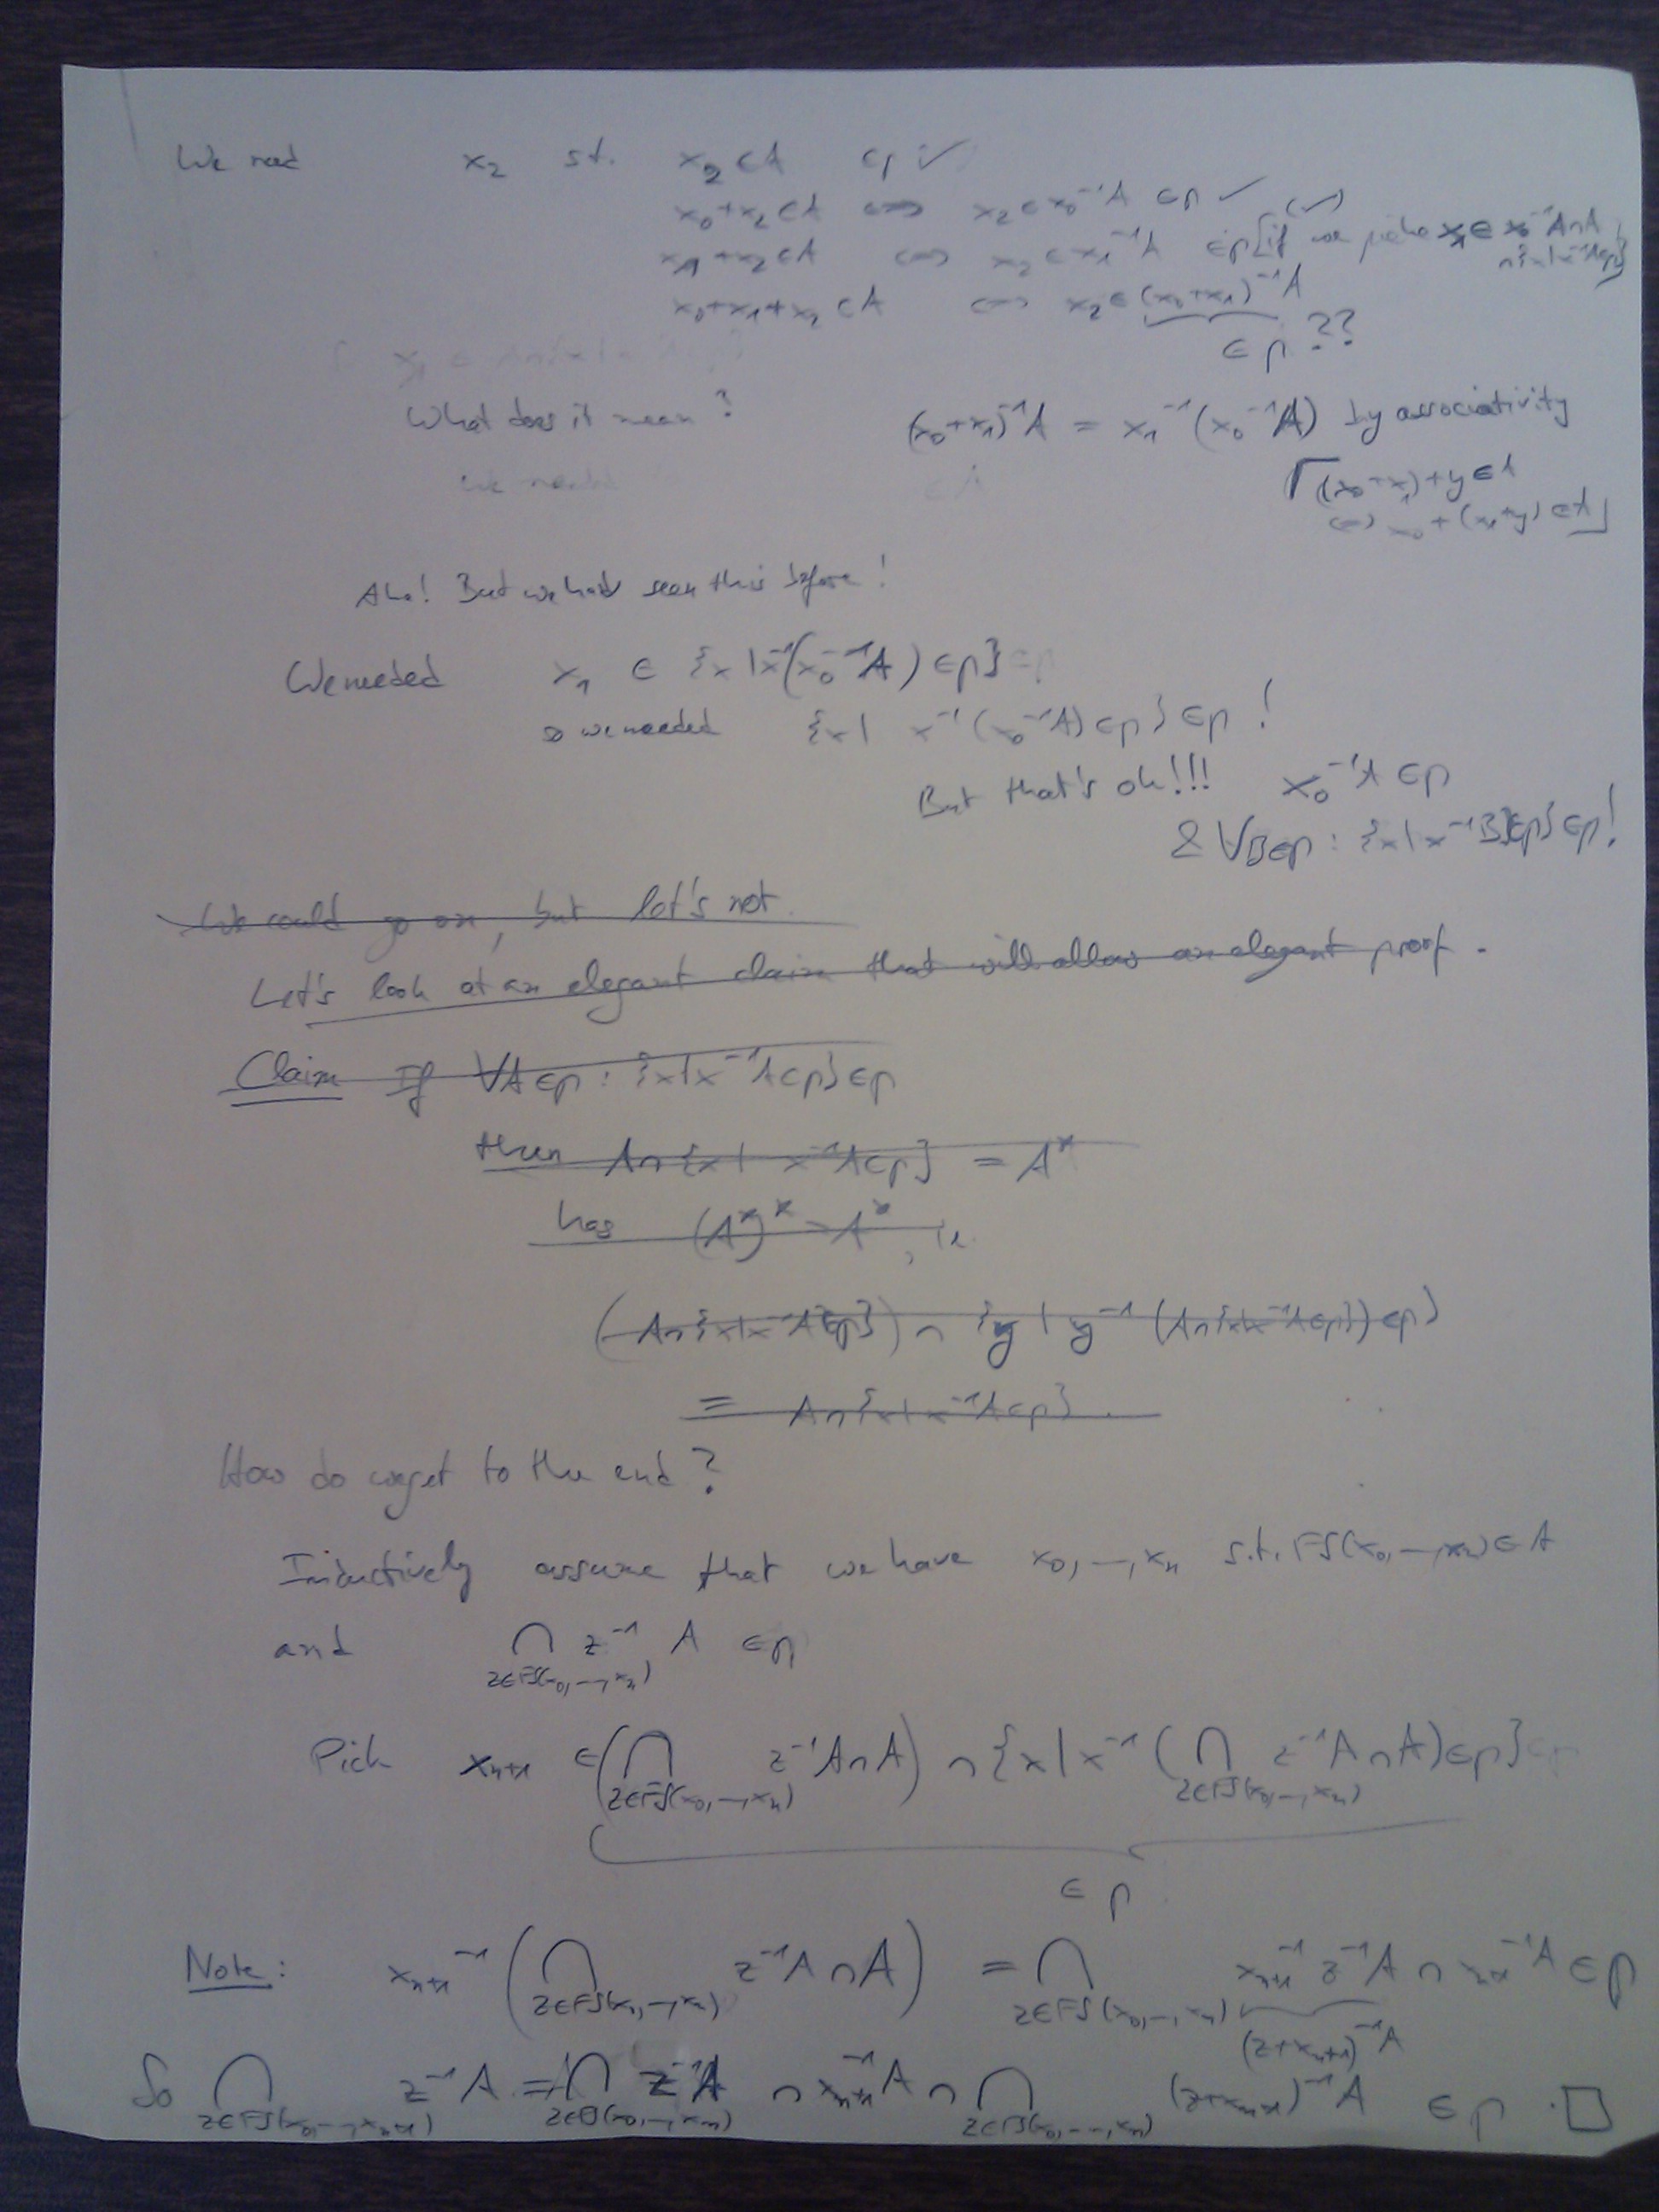 We need x₂ s.t. x₂ ∈ A ∈ p ✓
x₀+x₂ ∈ A ⟺ x₂ ∈ x₀⁻¹A ∈ p ✓ (✓)
x₁+x₂ ∈ A ⟺ x₂ ∈ x₁⁻¹A ∈ p [if we picked x₁ ∈ x₀⁻¹A∩A
∩{x|x⁻¹A∈p}]
x₀+x₁+x₂ ∈ A ⟺ x₂ ∈ (x₀+x₁)⁻¹A
∈ p ??
What does it mean? (x₀+x₁)⁻¹A = x₁⁻¹(x₀⁻¹A) by associativity
we need
⌈(x₀+x₁)+y ∈ A
⟺ x₀+(x₁+y) ∈ A⌋
Aha! But we had seen this before!
We needed x₁ ∈ {x | x⁻¹(x₀⁻¹A) ∈ p}
so we needed {x | x⁻¹(x₀⁻¹A) ∈ p} ∈ p !
But that's ok!!! x₀⁻¹A ∈ p
& ∀B∈p : {x | x⁻¹B ∈ p} ∈ p!
We could go on, but let's not.
Let's look at an elegant claim that will allow an elegant proof.
Claim If ∀A∈p : {x|x⁻¹A∈p}∈p
then A∩{x | x⁻¹A∈p} = A*
has (A*)* = A*, i.e.
(A∩{x|x⁻¹A∈p}) ∩ {y | y⁻¹(A∩{x|x⁻¹A∈p})∈p}
= A∩{x|x⁻¹A∈p}.
How do we get to the end?
Inductively assume that we have x₀,—,xₙ s.t. FS(x₀,—,xₙ) ∈ A
and ⋂_{z∈FS(x₀,—,xₙ)} z⁻¹A ∈ p
Pick xₙ₊₁ ∈ (⋂_{z∈FS(x₀,—,xₙ)} z⁻¹A∩A) ∩ {x | x⁻¹(⋂_{z∈FS(x₀,—,xₙ)} z⁻¹A∩A)∈p}
∈ p
Note: xₙ₊₁⁻¹(⋂_{z∈FS(x₀,—,xₙ)} z⁻¹A∩A) = ⋂_{z∈FS(x₀,—,xₙ)} xₙ₊₁⁻¹z⁻¹A ∩ xₙ₊₁⁻¹A ∈ p
(z+xₙ₊₁)⁻¹A
So ⋂_{z∈FS(x₀,—,xₙ₊₁)} z⁻¹A = ⋂_{z∈FS(x₀,—,xₙ)} z⁻¹A ∩ xₙ₊₁⁻¹A ∩ ⋂_{z∈FS(x₀,—,xₙ)} (z+xₙ₊₁)⁻¹A ∈ p. □